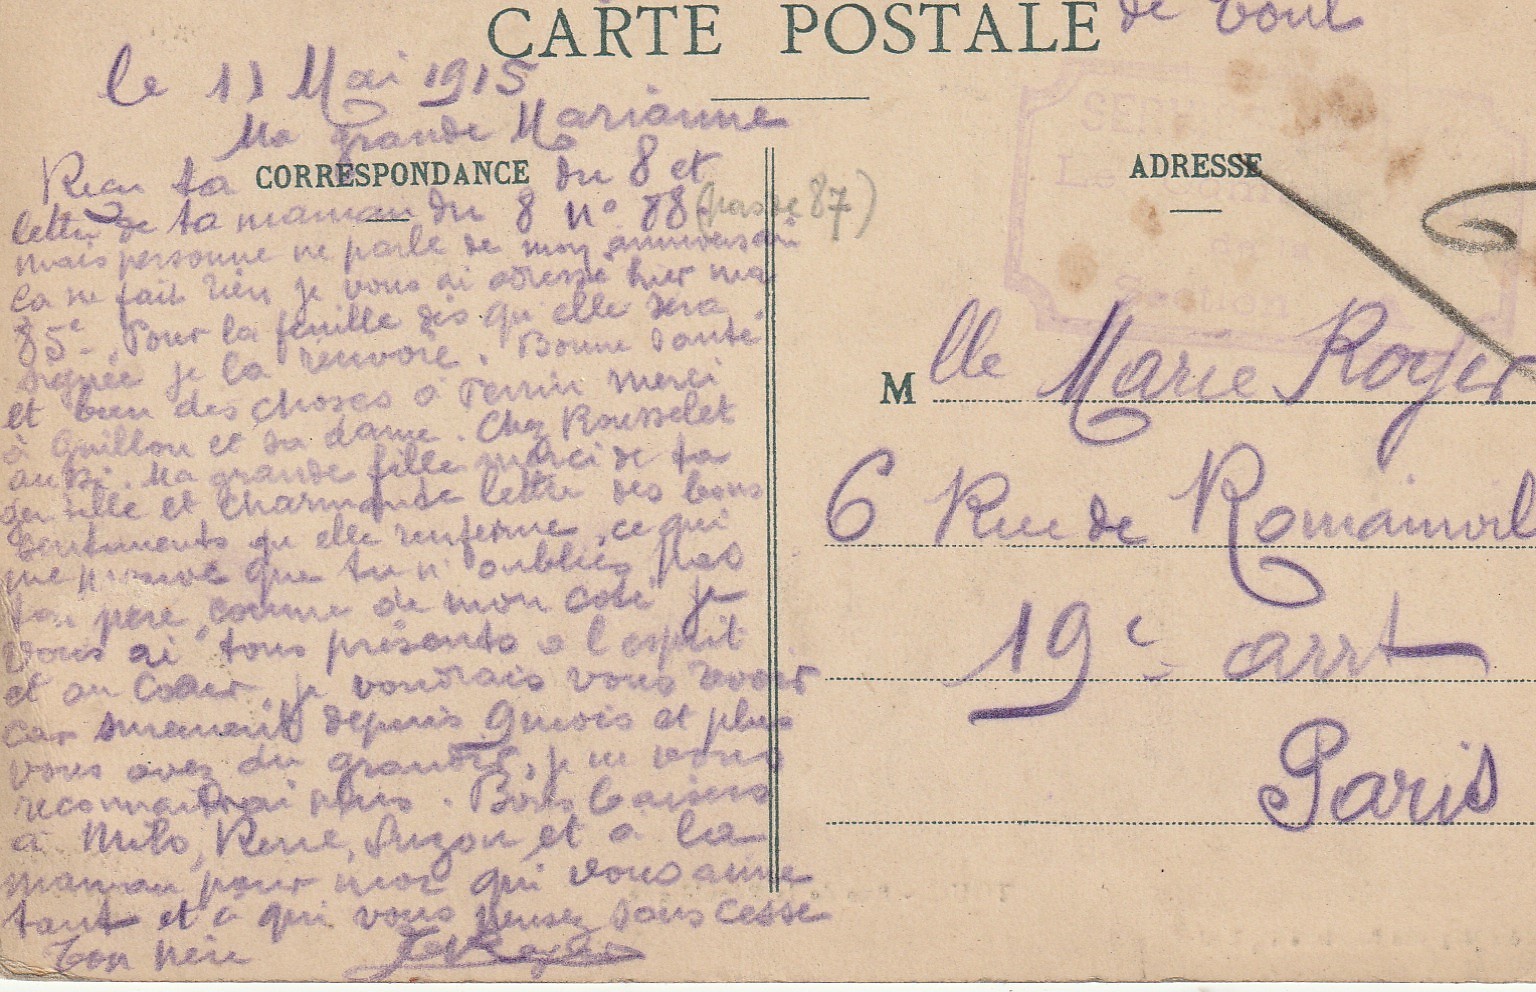 de Toul
CARTE POSTALE
le 11 Mai 1915
Ma grande Marianne
CORRESPONDANCE
Recu ta du 8 et
lettre de ta maman du 8 n° 88 (pas de 87)
mais personne ne parle de mon anniversaire
ca ne fait rien je vous ai adressé hier ma
85e. Pour la feuille dès qu'elle sera
signée je la renvoie. Bonne Santé
et bien des choses à Perrin merci
à Guillou et sa dame. Chez Rousselet
aussi. Ma grande fille merci de ta
gentille et charmante lettre des bons
sentiments qu'elle renferme, ce qui
me prouve que tu n'oublies pas
ton père, comme de mon coté je
vous ai tous présents à l'esprit
et au coeur, je voudrais vous revoir
car depuis 9 mois et plus
vous avez du grandir, je ne vous
reconnaitrai plus. Bons baisers
à Milo, René, Suzon et à la
maman pour moi qui vous aime
tant et à qui vous pensez sans cesse
Ton père Royer
ADRESSE
Mlle Marie Royer
6 Rue de Romainvil
19e arrt
Paris